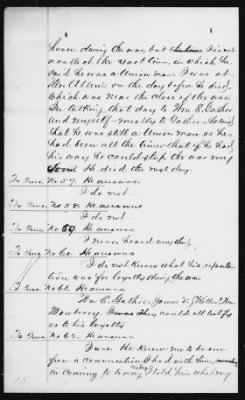 home during the war, but
each at the last time, in which he
said he was a Union man. I was at
Mr Allen's on the day before he died,
which was near the close of the war.
In talking, that day to Wm E. Gather
and myself mostly to Gather
that he was still a Union man as he
had been all the time that if he had
his way he could stop the war very
soon He died the next day.
To Ques. No 57. He answers
I do not
To Ques. No 58. He answers
I do not
To Ques No 59. He answers.
I never heard anything.
To Ques No 60. He answers
I do not know what his reputa-
tion was for loyalty during the war
To Ques No 61. He answers
Wm E. Gather, James W. Keller Wm
Mowbrey. They could all testify
as to his loyalty
To Ques No 62. He answers
I was. He knew me to be one
from a conversation I had with him,
in coming to town, I told him what my